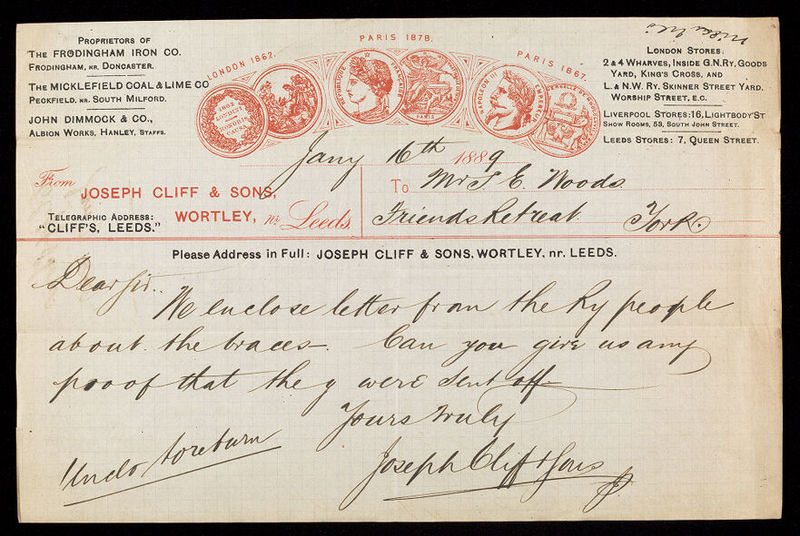 Proprietors of
The Frodingham Iron Co.
Frodingham, nr. Doncaster.
The Micklefield Coal & Lime Co
Peckfield, nr. South Milford.
John Dimmock & Co.,
Albion Works, Hanley, Staffs.
LONDON 1862.
PARIS 1878.
PARIS 1867.
1862
LONDINI
HONORIS
CAUSA
REPUBLIQUE FRANÇAISE
PARIS
NAPOLEON III EMPEREUR
London Stores:
2 & 4 Wharves, Inside G.N.Ry. Goods
Yard, King's Cross, and
L. & N.W. Ry. Skinner Street Yard.
Worship Street, E.C.
Liverpool Stores: 16, Lightbody St
Show Rooms, 53, South John Street.
Leeds Stores: 7, Queen Street.
Jany 16th 1889
From
JOSEPH CLIFF & SONS,
WORTLEY, nr. Leeds.
Telegraphic Address:
"CLIFF'S, LEEDS."
To Mr E. Woods
Friends Retreat York
Please Address in Full: JOSEPH CLIFF & SONS, WORTLEY, nr. LEEDS.
Dear Sir.
We enclose letter from the Ry people
about the traces. Can you give us any
proof that they were sent off
Yours truly
Joseph Cliff & Sons
to return